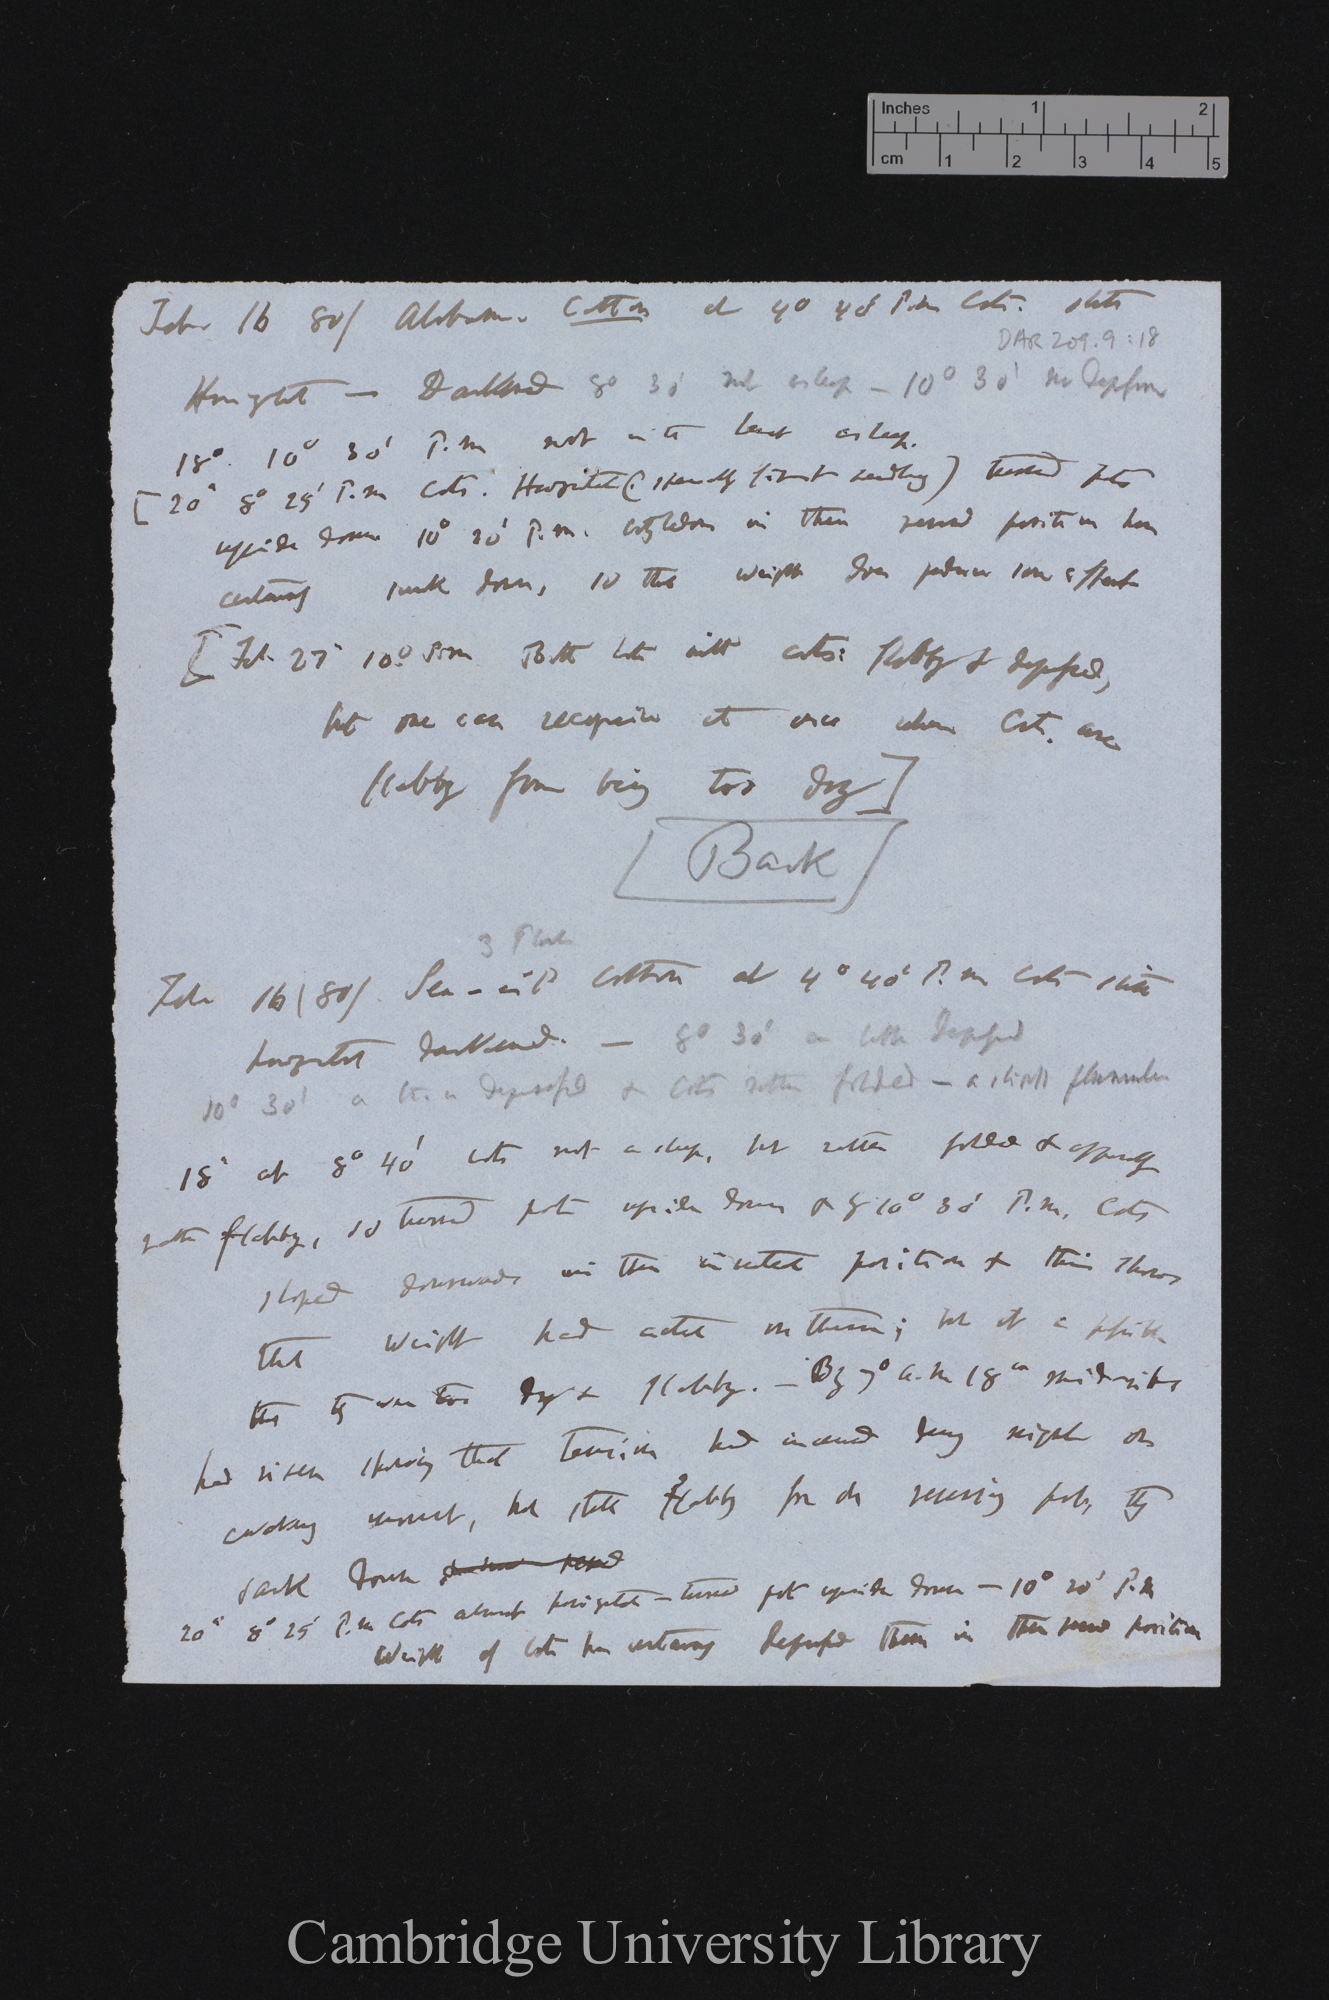 Inches 1 2
cm 1 2 3 4 5
Feb 16 80/ Alabama. Cotton at 4° 40' P.m Cots. quite
DAR 209.9:18
Horizontal — Darkened 8° 30' not asleep — 10° 30' no depression
18° 10° 30' P.m not in the least asleep.
[20th 8° 25' P.m Cots. Horizontal ( seedling) turned pots
upside down 10° 20' P.m. cotyledons in their reversed position have
certainly sunk down, so that weight does produce some effect
[Feb. 27th 10° P.m Both lots with cots: flabby & depressed,
but one can recognise at once when Cots. are
flabby from being too dry]
[Back]
3 Plants
Feb 16/80/ Sea-isld cotton at 4° 40' P.m Cots quite
horizontal darkened. — 8° 30' a little depressed
10° 30' a little depressed & Cots rather folded — a plumule
18th at 8° 40' cots not asleep, but rather folded & apparently
rather flabby, so turned pots upside down & by 10° 30' P.m. Cots
sloped downwards in their inverted position & this shows
that weight had acted on them; but it is possible
that they were too dry & flabby. — By 7° a.m 18th
had risen showing that tension had increased during night or
, but still flabby for on reversing pots, they
sank down
20th 8° 25' P.m Cots almost horizontal — turned pot upside down — 10° 20' P.m
Weight of Cots has certainly depressed them in their reversed position
Cambridge University Library